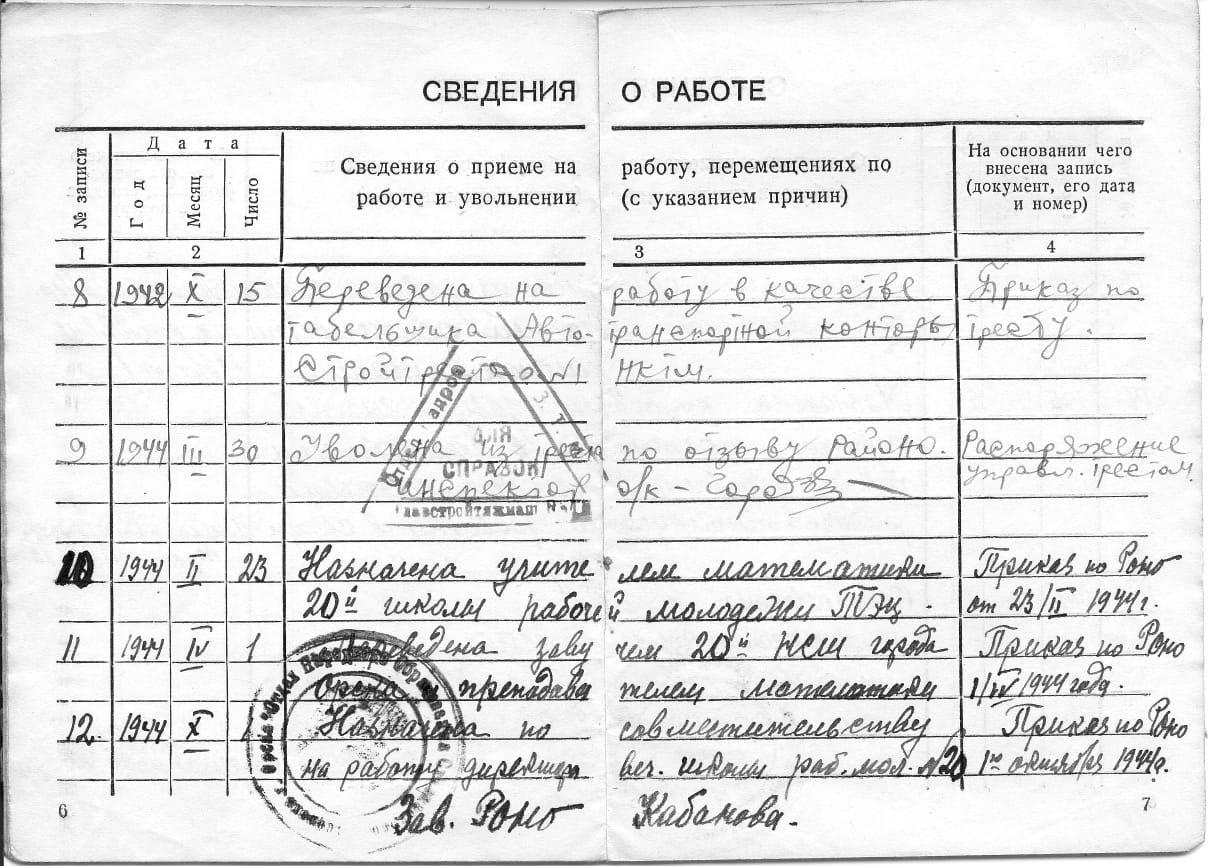 СВЕДЕНИЯ О РАБОТЕ
№ записи
Дата
Год
Месяц
Число
Сведения о приеме на работу, перемещениях по
работе и увольнении (с указанием причин)
На основании чего
внесена запись
(документ, его дата
и номер)
1 2 3 4
8 1942 X 15 Переведена на работу в качестве Приказ по
табельщика Авто- транспортной конторы тресту.
Стройтреста №1 НКТМ.
9 1944 III 30 Уволена из треста по отзыву Районо. Распоряжение
Инспектор о/к – управл. трестом.
ДЛЯ
СПРАВОК
Главстройтяжмаш
10 1944 II 23 Назначена учите лем математики Приказ по Роно
20й школы рабочей молодежи ТЭЦ. от 23/II 1944г.
11 1944 IV 1 Переведена заву чем 20й НСШ города Приказ по Роно
Орска и преподава телем математики 1/IV 1944 года.
12. 1944 X 1 Назначена по совместительству Приказ по Роно
на работу директора веч. школы раб. мол. №20 1го октября 1944г.
Зав. Роно Кабанова.
6 7